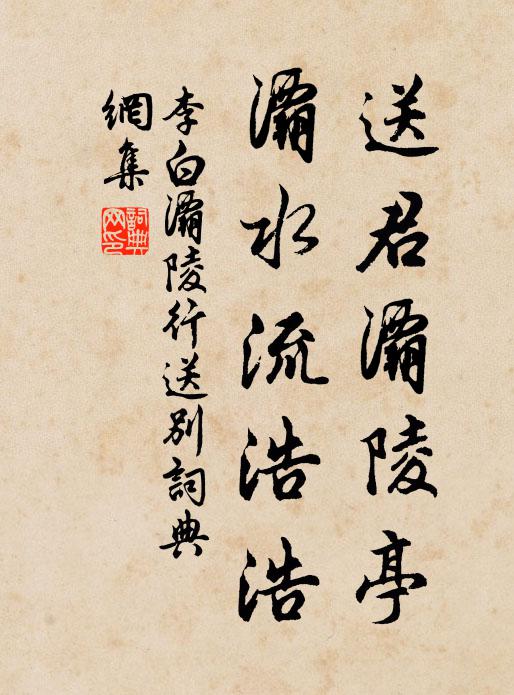 送君灞陵亭
灞水流浩浩
李白灞陵行送別詞典
網集
詞典网印